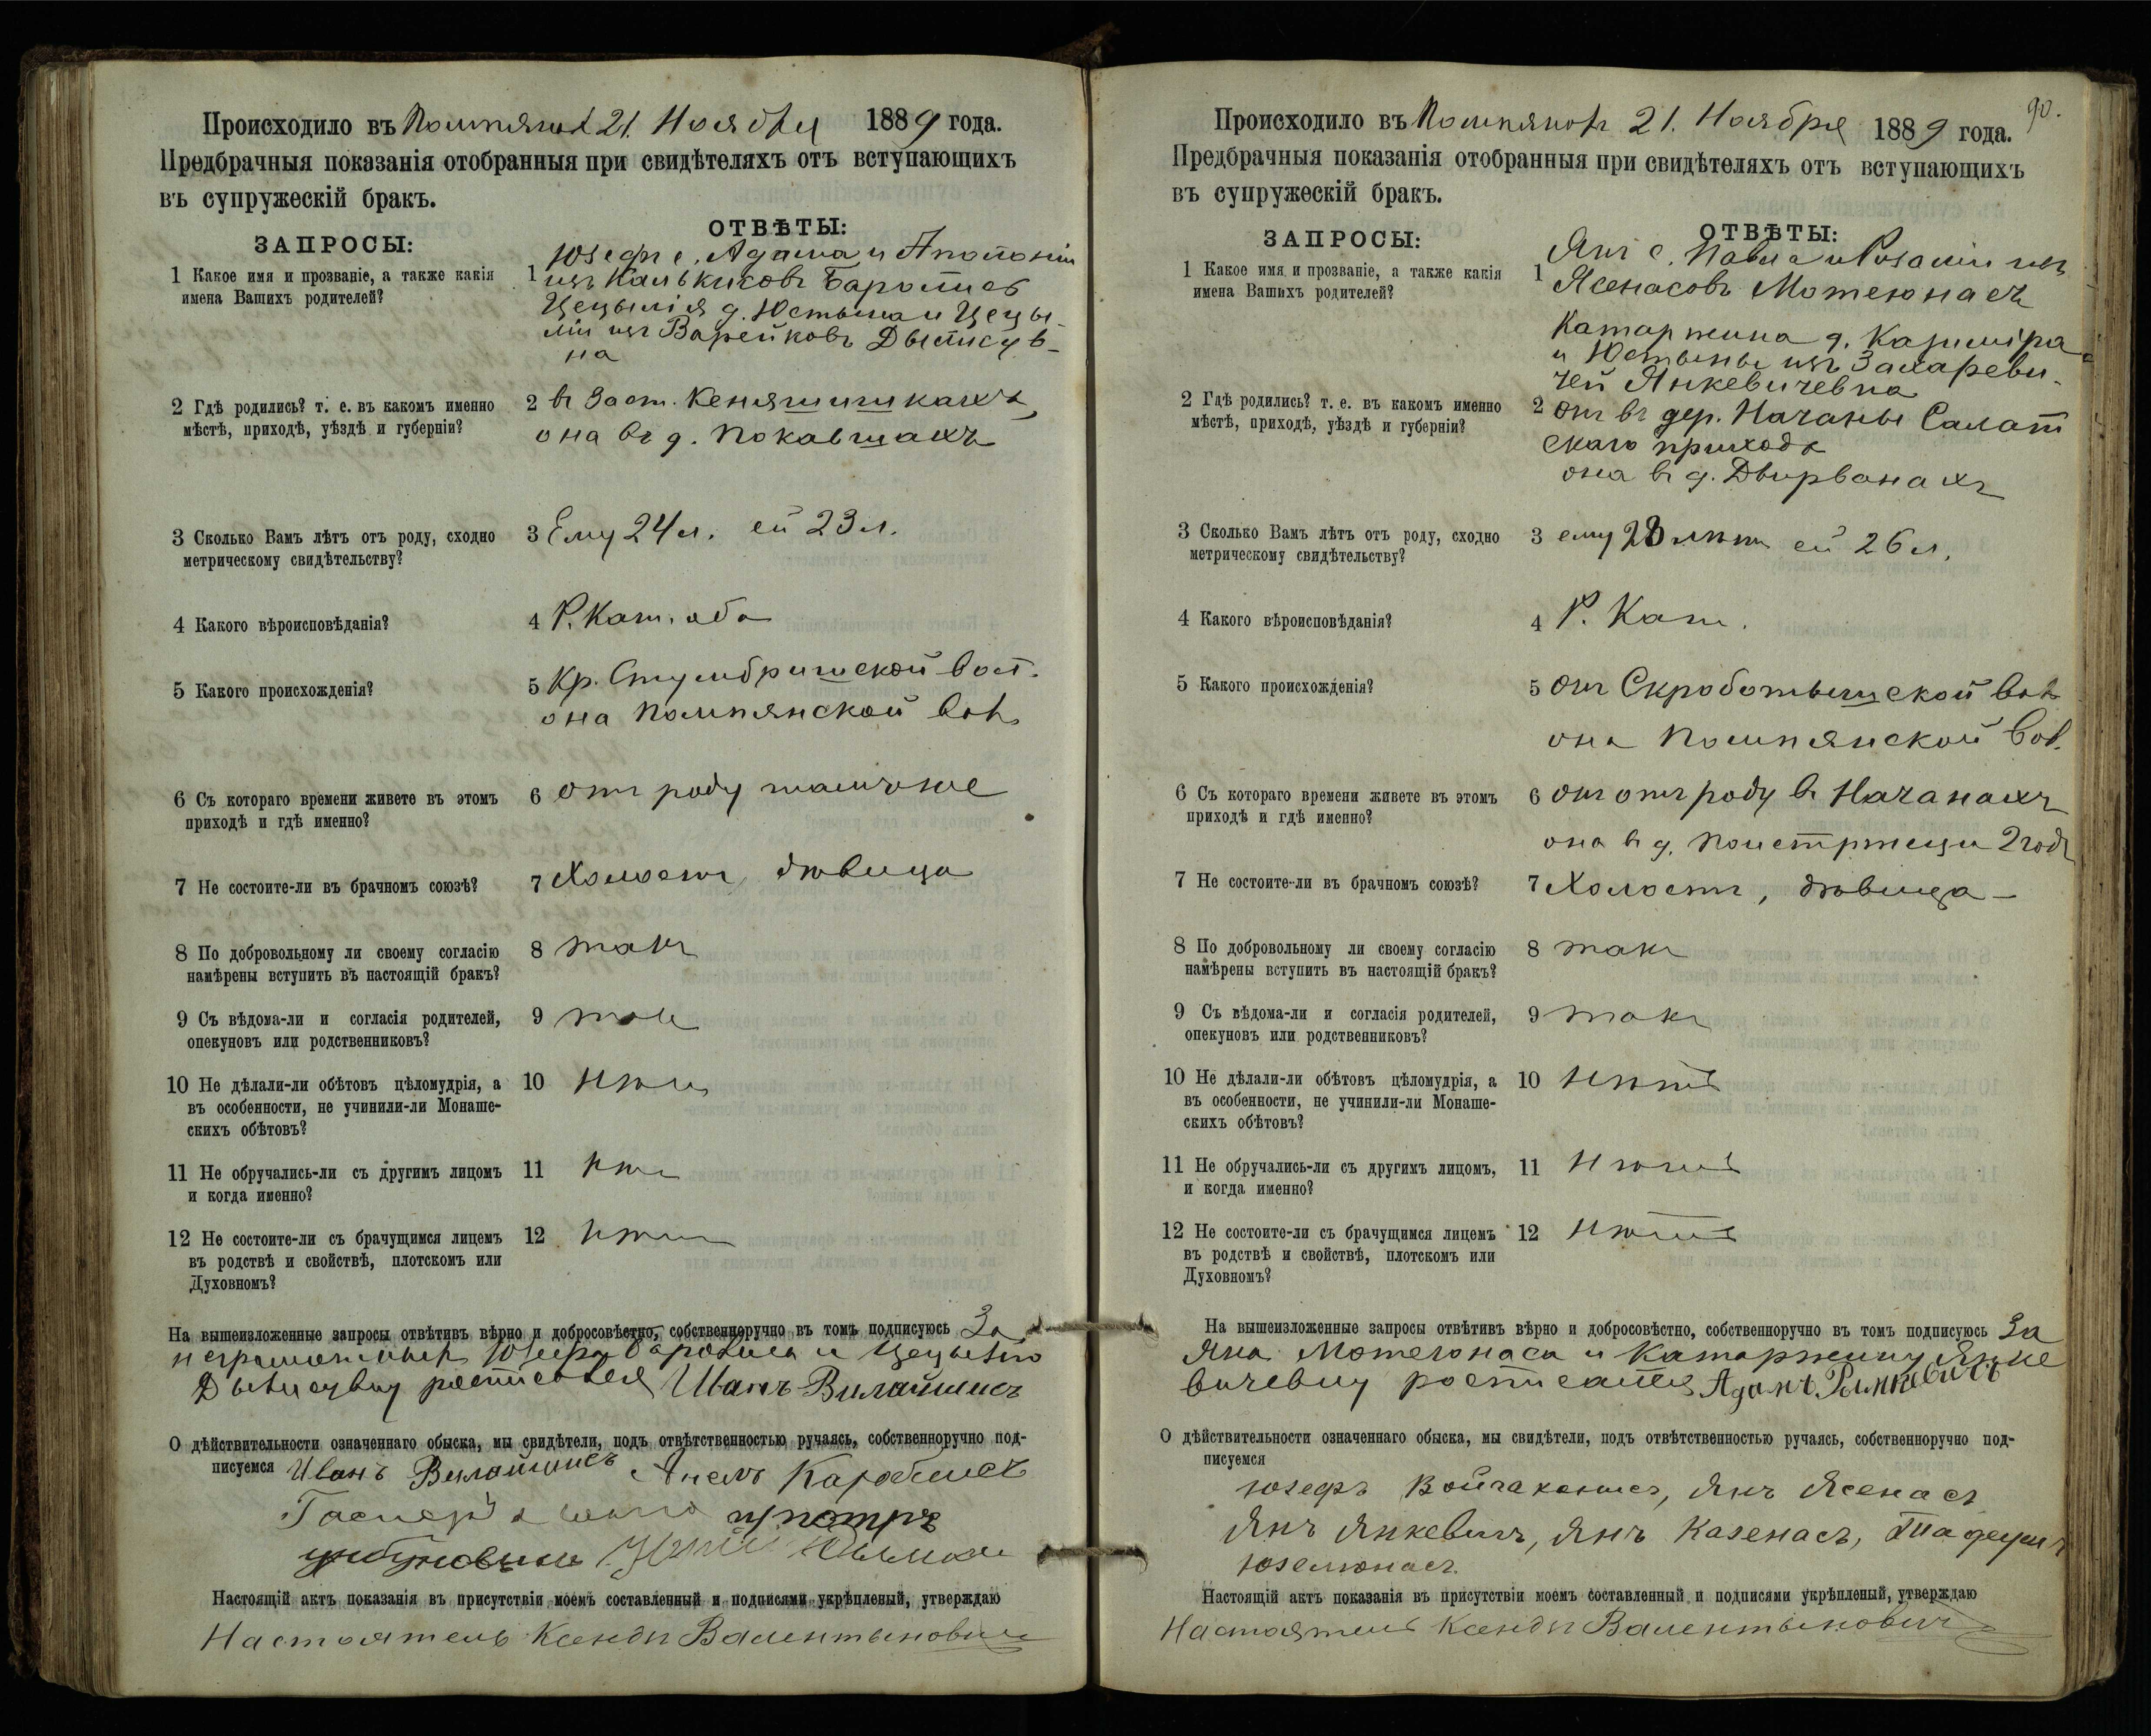 Происходило въ 21. Ноября 1889 года.
Предбрачныя показанія отобранныя при свидѣтеляхъ отъ вступающихъ
въ супружескій бракъ.
ЗАПРОСЫ:
ОТВѢТЫ:
1 Какое имя и прозваніе, а также какія
имена Вашихъ родителей?
1 Юзефъ с. Адама и Аполоніи
изъ
Цецылія д. Юстына и Цецы-
ліи изъ Варейковъ
на
2 Гдѣ родились? т. е. въ какомъ именно
мѣстѣ, приходѣ, уѣздѣ и губерніи?
2 въ Заст. Кеняшишкахъ,
она въ д.
3 Сколько Вамъ лѣтъ отъ роду, сходно
метрическому свидѣтельству?
3 Ему 24 л. ей 23 л.
4 Какого вѣроисповѣданія?
4 Р. Кат. оба
5 Какого происхожденія?
5 Кр. Стумбришской вол.
она Помпянской вол.
6 Съ котораго времени живете въ этомъ
приходѣ и гдѣ именно?
6 отъ роду тамъже
7 Не состоите-ли въ брачномъ союзѣ?
7 Холостъ, дѣвица
8 По добровольному ли своему согласію
намѣрены вступить въ настоящій бракъ?
8 такъ
9 Съ вѣдома-ли и согласія родителей,
опекуновъ или родственниковъ?
9 такъ
10 Не дѣлали-ли обѣтовъ цѣломудрія, а
въ особенности, не учинили-ли Монаше-
скихъ обѣтовъ?
10 нѣтъ
11 Не обручались-ли съ другимъ лицомъ
и когда именно?
11 нѣтъ
12 Не состоите-ли съ брачущимся лицемъ
въ родствѣ и свойствѣ, плотскомъ или
Духовномъ?
12 нѣтъ
На вышеизложенные запросы отвѣтивъ вѣрно и добросовѣстно, собственноручно въ томъ подписуюсь За
неграмотныхъ Юзефа и Цецылію
Иванъ Вилайшисъ
О дѣйствительности означеннаго обыска, мы свидѣтели, подъ отвѣтственностью ручаясь, собственноручно под-
писуемся Иванъ Вилайшисъ
Настоящій актъ показанія въ присутствіи моемъ составленный и подписями укрѣпленый, утверждаю
Настоятель Ксендзъ Валентыновичъ
90.
Происходило въ 21. Ноября 1889 года.
Предбрачныя показанія отобранныя при свидѣтеляхъ отъ вступающихъ
въ супружескій бракъ.
ЗАПРОСЫ:
ОТВѢТЫ:
1 Какое имя и прозваніе, а также какія
имена Вашихъ родителей?
1 Янъ с. Павла и Розаліи изъ
Ясенасовъ Мотеюнасъ
Катаржина д. Казиміра
и Юстыны изъ Захареви-
чей Янкевичевна
2 Гдѣ родились? т. е. въ какомъ именно
мѣстѣ, приходѣ, уѣздѣ и губерніи?
2 Онъ въ дер. Начаны Салат
скаго прихода
она въ д. Двирванахъ
3 Сколько Вамъ лѣтъ отъ роду, сходно
метрическому свидѣтельству?
3 ему 28 лѣтъ ей 26 л.
4 Какого вѣроисповѣданія?
4 Р. Кат.
5 Какого происхожденія?
5 Онъ Скроботышской вол.
она Помпянской вол.
6 Съ котораго времени живете въ этомъ
приходѣ и гдѣ именно?
6 Онъ отъ роду въ Начанахъ
она въ д.
7 Не состоите-ли въ брачномъ союзѣ?
7 Холостъ, дѣвица –
8 По добровольному ли своему согласію
намѣрены вступить въ настоящій бракъ?
8 такъ
9 Съ вѣдома-ли и согласія родителей,
опекуновъ или родственниковъ?
9 такъ
10 Не дѣлали-ли обѣтовъ цѣломудрія, а
въ особенности, не учинили-ли Монаше-
скихъ обѣтовъ?
10 нѣтъ
11 Не обручались-ли съ другимъ лицомъ,
и когда именно?
11 нѣтъ
12 Не состоите-ли съ брачущимся лицемъ
въ родствѣ и свойствѣ, плотскомъ или
Духовномъ?
12 нѣтъ
На вышеизложенные запросы отвѣтивъ вѣрно и добросовѣстно, собственноручно въ томъ подписуюсь За
Яна Мотеюнаса и Катаржину Янке
вичевну росписался Адамъ Рымкевичъ
О дѣйствительности означеннаго обыска, мы свидѣтели, подъ отвѣтственностью ручаясь, собственноручно под-
писуемся
Юзефъ Янъ Ясенасъ
Янъ Янкевичъ, Янъ Казенасъ, Тадеушъ
Юзелюнасъ.
Настоящій актъ показанія въ присутствіи моемъ составленный и подписями укрѣпленый, утверждаю
Настоятель Ксендзъ Валентыновичъ